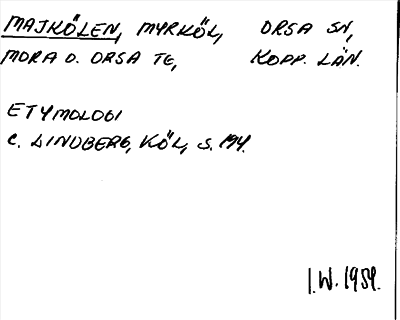 MAJKÖLEN, MYRKÖL, ORSA SN,
MORA O. ORSA TG, KOPP. LÄN.
ETYMOLOGI
C. LINDBERG, KÖL, S. 194.
I.W. 1959.